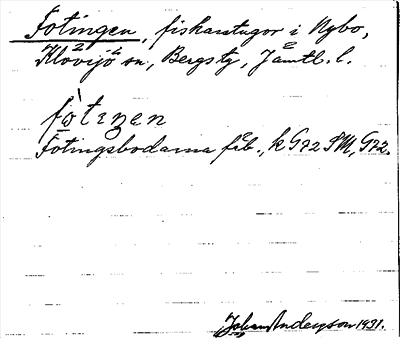 Fotingen, fiskarstugor i Nybo,
Klövsjö sn, Bergs tg, Jämtl. l.
fòtıŋen
Fotingsbodarna fäb., k G72 SM, G72.
Johan Anderson 1931.